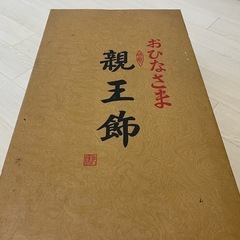 おひなさま
親王飾